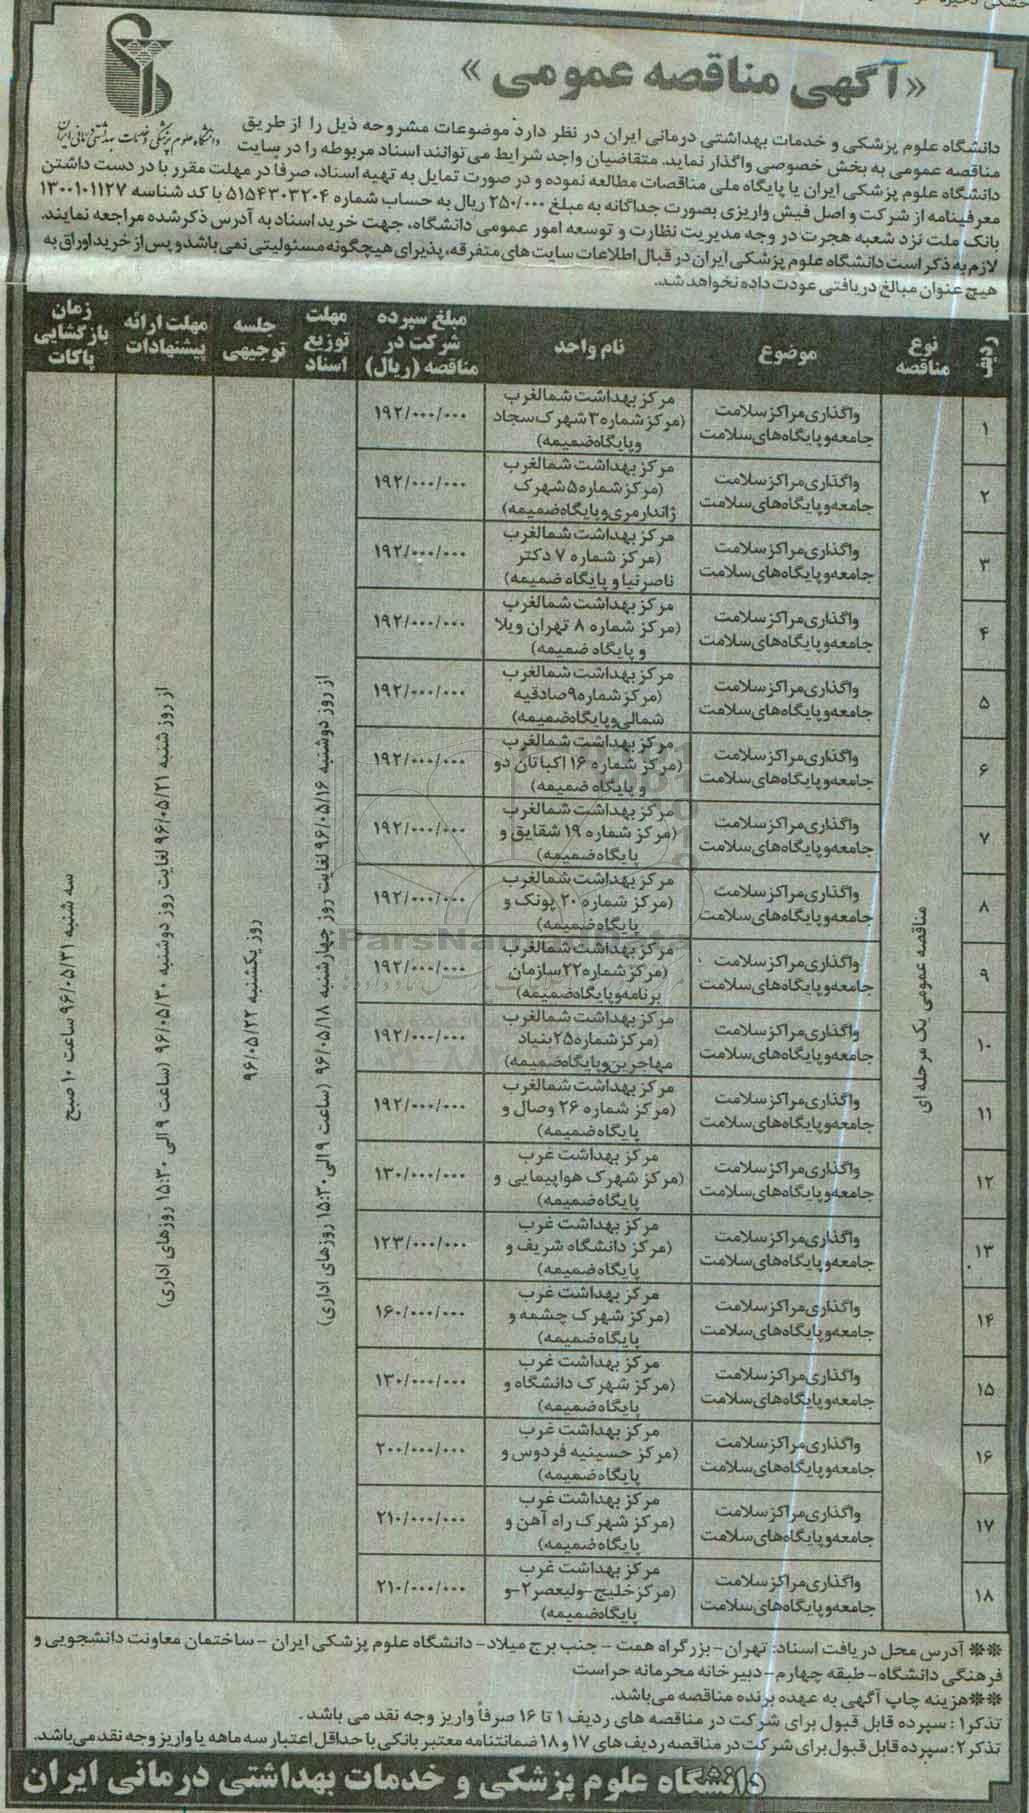 «آگهی مناقصه عمومی»
دانشگاه علوم پزشکی و خدمات بهداشتی درمانی ایران
دانشگاه علوم پزشکی و خدمات بهداشتی درمانی ایران در نظر دارد موضوعات مشروحه ذیل را از طریق
مناقصه عمومی به بخش خصوصی واگذار نماید. متقاضیان واجد شرایط می توانند اسناد مربوطه را در سایت
دانشگاه علوم پزشکی ایران یا پایگاه ملی مناقصات مطالعه نموده و در صورت تمایل به تهیه اسناد، صرفاً در مهلت مقرر با در دست داشتن
معرفینامه از شرکت و اصل فیش واریزی بصورت جداگانه به مبلغ ۲۵۰/۰۰۰ ریال به حساب شماره ۵۱۵۴۳۰۳۲۰۴ با کد شناسه ۱۳۰۰۱۰۱۱۲۷
بانک ملت نزد شعبه هجرت در وجه مدیریت نظارت و توسعه امور عمومی دانشگاه، جهت خرید اسناد به آدرس ذکر شده مراجعه نمایند.
لازم به ذکر است دانشگاه علوم پزشکی ایران در قبال اطلاعات سایت های متفرقه، پذیرای هیچگونه مسئولیتی نمی باشد و پس از خرید اوراق به
هیچ عنوان مبالغ دریافتی عودت داده نخواهد شد.
ردیف | نوع مناقصه | موضوع | نام واحد | مبلغ سپرده شرکت در مناقصه (ریال) | مهلت توزیع اسناد | جلسه توجیهی | مهلت ارائه پیشنهادات | زمان بازگشایی پاکات
مناقصه عمومی یک مرحله ای
۱ واگذاری مراکز سلامت جامعه و پایگاه های سلامت مرکز بهداشت شمالغرب (مرکز شماره ۳ شهرک سجاد و پایگاه ضمیمه) ۱۹۲/۰۰۰/۰۰۰
۲ واگذاری مراکز سلامت جامعه و پایگاه های سلامت مرکز بهداشت شمالغرب (مرکز شماره ۵ شهرک ژاندارمری و پایگاه ضمیمه) ۱۹۲/۰۰۰/۰۰۰
۳ واگذاری مراکز سلامت جامعه و پایگاه های سلامت مرکز بهداشت شمالغرب (مرکز شماره ۷ دکتر ناصرنیا و پایگاه ضمیمه) ۱۹۲/۰۰۰/۰۰۰
۴ واگذاری مراکز سلامت جامعه و پایگاه های سلامت مرکز بهداشت شمالغرب (مرکز شماره ۸ تهران ویلا و پایگاه ضمیمه) ۱۹۲/۰۰۰/۰۰۰
۵ واگذاری مراکز سلامت جامعه و پایگاه های سلامت مرکز بهداشت شمالغرب (مرکز شماره ۹ صادقیه شمالی و پایگاه ضمیمه) ۱۹۲/۰۰۰/۰۰۰
۶ واگذاری مراکز سلامت جامعه و پایگاه های سلامت مرکز بهداشت شمالغرب (مرکز شماره ۱۶ اکباتان دو و پایگاه ضمیمه) ۱۹۲/۰۰۰/۰۰۰
۷ واگذاری مراکز سلامت جامعه و پایگاه های سلامت مرکز بهداشت شمالغرب (مرکز شماره ۱۹ شقایق و پایگاه ضمیمه) ۱۹۲/۰۰۰/۰۰۰
۸ واگذاری مراکز سلامت جامعه و پایگاه های سلامت مرکز بهداشت شمالغرب (مرکز شماره ۲۰ پونک و پایگاه ضمیمه) ۱۹۲/۰۰۰/۰۰۰
۹ واگذاری مراکز سلامت جامعه و پایگاه های سلامت مرکز بهداشت شمالغرب (مرکز شماره ۲۲ سازمان برنامه و پایگاه ضمیمه) ۱۹۲/۰۰۰/۰۰۰
۱۰ واگذاری مراکز سلامت جامعه و پایگاه های سلامت مرکز بهداشت شمالغرب (مرکز شماره ۲۵ بنیاد مهاجرین و پایگاه ضمیمه) ۱۹۲/۰۰۰/۰۰۰
۱۱ واگذاری مراکز سلامت جامعه و پایگاه های سلامت مرکز بهداشت شمالغرب (مرکز شماره ۲۶ وصال و پایگاه ضمیمه) ۱۹۲/۰۰۰/۰۰۰
۱۲ واگذاری مراکز سلامت جامعه و پایگاه های سلامت مرکز بهداشت غرب (مرکز شهرک هواپیمایی و پایگاه ضمیمه) ۱۳۰/۰۰۰/۰۰۰
۱۳ واگذاری مراکز سلامت جامعه و پایگاه های سلامت مرکز بهداشت غرب (مرکز دانشگاه شریف و پایگاه ضمیمه) ۱۲۳/۰۰۰/۰۰۰
۱۴ واگذاری مراکز سلامت جامعه و پایگاه های سلامت مرکز بهداشت غرب (مرکز شهرک چشمه و پایگاه ضمیمه) ۱۶۰/۰۰۰/۰۰۰
۱۵ واگذاری مراکز سلامت جامعه و پایگاه های سلامت مرکز بهداشت غرب (مرکز شهرک دانشگاه و پایگاه ضمیمه) ۱۳۰/۰۰۰/۰۰۰
۱۶ واگذاری مراکز سلامت جامعه و پایگاه های سلامت مرکز بهداشت غرب (مرکز حسینیه فردوس و پایگاه ضمیمه) ۲۰۰/۰۰۰/۰۰۰
۱۷ واگذاری مراکز سلامت جامعه و پایگاه های سلامت مرکز بهداشت غرب (مرکز شهرک راه آهن و پایگاه ضمیمه) ۲۱۰/۰۰۰/۰۰۰
۱۸ واگذاری مراکز سلامت جامعه و پایگاه های سلامت مرکز بهداشت غرب (مرکز خلیج-ولیعصر ۲-و پایگاه ضمیمه) ۲۱۰/۰۰۰/۰۰۰
از روز دوشنبه ۹۶/۰۵/۱۶ لغایت روز چهارشنبه ۹۶/۰۵/۱۸ (ساعت ۹ الی ۱۵:۳۰ روزهای اداری)
روز یکشنبه ۹۶/۰۵/۲۲
از روز شنبه ۹۶/۰۵/۲۱ لغایت روز دوشنبه ۹۶/۰۵/۳۰ (ساعت ۹ الی ۱۵:۳۰ روزهای اداری)
سه شنبه ۹۶/۰۵/۳۱ ساعت ۱۰ صبح
ParsNamadData
** آدرس محل دریافت اسناد: تهران-بزرگراه همت - جنب برج میلاد- دانشگاه علوم پزشکی ایران - ساختمان معاونت دانشجویی و
فرهنگی دانشگاه- طبقه چهارم-دبیرخانه محرمانه حراست
**هزینه چاپ آگهی به عهده برنده مناقصه می‌باشد.
تذکر۱: سپرده قابل قبول برای شرکت در مناقصه های ردیف ۱ تا ۱۶ صرفاً واریز وجه نقد می باشد.
تذکر۲: سپرده قابل قبول برای شرکت در مناقصه ردیف های ۱۷ و ۱۸ ضمانتنامه معتبر بانکی با حداقل اعتبار سه ماهه یا واریز وجه نقد می‌باشد.
دانشگاه علوم پزشکی و خدمات بهداشتی درمانی ایران